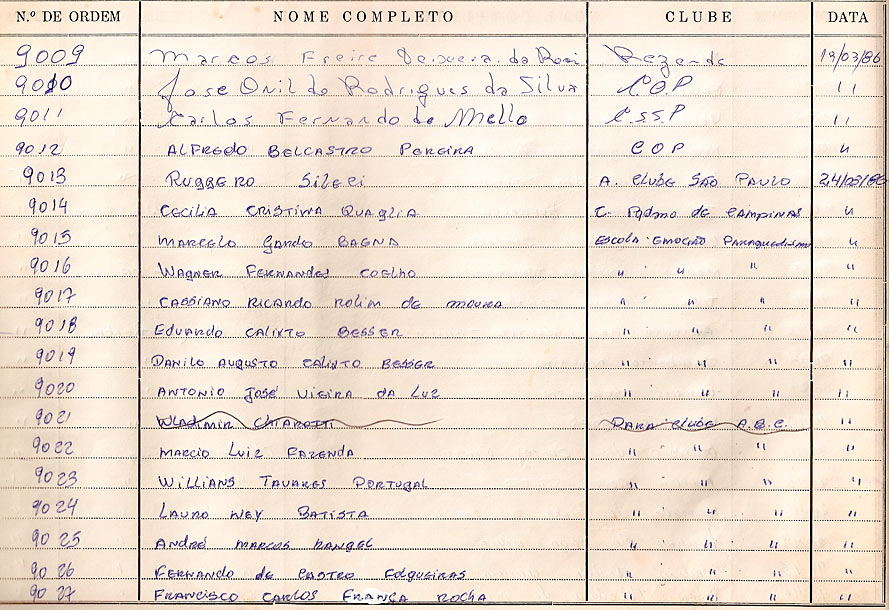 N.º DE ORDEM NOME COMPLETO CLUBE DATA
9009 Marcos Freire Teixeira da Rezende 19/03/86
9010 Jose Onildo Rodrigues da Silva C.O.P " "
9011 Carlos Fernando de Mello C.S.S.P " "
9012 ALFREDO BELCASTRO PEREIRA C O P "
9013 RUGGERO SILECI A. CLUBE SÃO PAULO 24/03/86
9014 CECILIA CRISTINA QUAGLIA C. de CAMPINAS "
9015 MARCELO Gardo BAGNA ESCOLA EMOÇÃO PARAQUEDISMO "
9016 WAGNER FERNANDES COELHO " " " "
9017 CASSIANO RICARDO ROLIM de MOURA " " " "
9018 EDUARDO CALIXTO BESSER " " " "
9019 DANILO AUGUSTO CALIXTO BESSER " " " "
9020 ANTONIO JOSÉ VIEIRA da LUZ " " " "
9021 WLADIMIR CHIAROTTI PARA CLUBE A.B.C. "
9022 MARCIO LUIZ FAZENDA " " " "
9023 WILLIANS TAVARES PORTUGAL " " " "
9024 LAURO NEY BATISTA " " " "
9025 ANDRÉ MARCOS RANGEL " " " "
9026 FERNANDO de CASTRO FOLGUEIRAS " " " "
9027 FRANCISCO CARLOS FRANÇA ROCHA " " " "